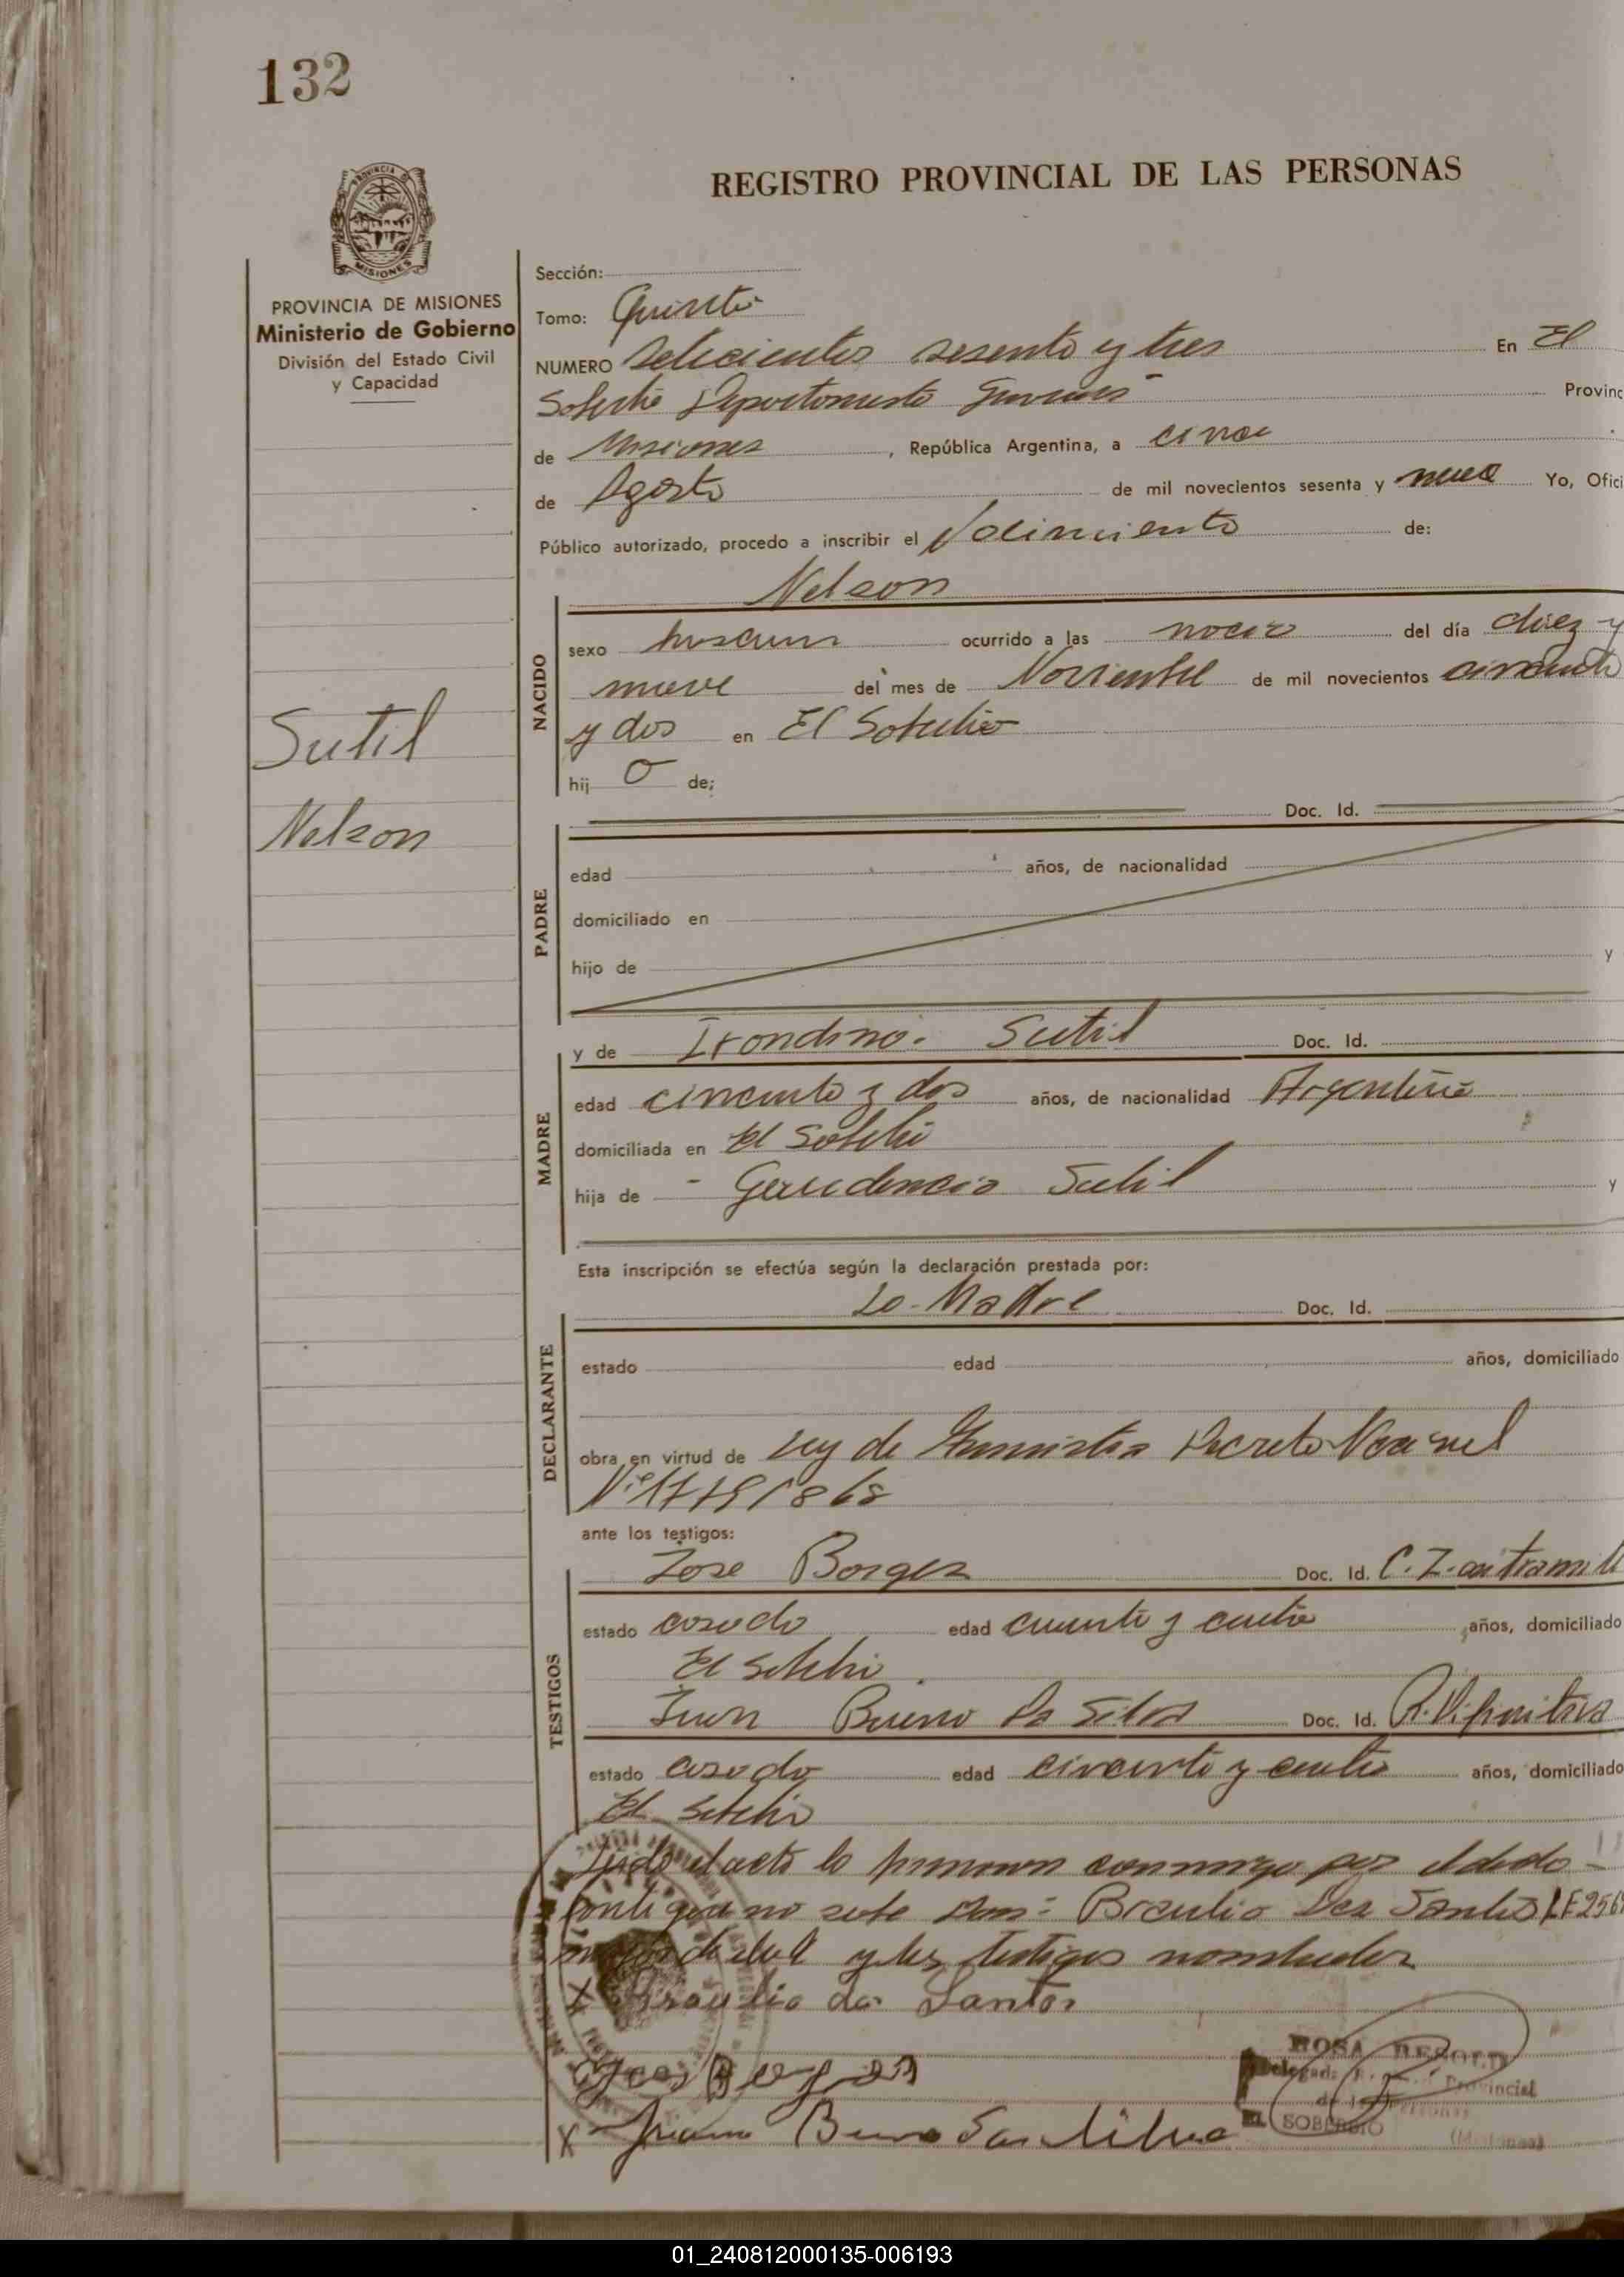 132
REGISTRO PROVINCIAL DE LAS PERSONAS
PROVINCIA DE MISIONES
Ministerio de Gobierno
División del Estado Civil
y Capacidad
Sutil
Nelson
Sección:
Tomo: Quinto
NUMERO sesenta y tres En El
Departamento Provinc
de Misiones, República Argentina, a cinco
de Agosto de mil novecientos sesenta y nueve Yo, Ofici
Público autorizado, procedo a inscribir el Nacimiento de:
Nelson
NACIDO
sexo ocurrido a las del día diez y
nueve del mes de Noviembre de mil novecientos cincuenta
y dos en El Soberbio
hij o de;
Doc. Id.
PADRE
edad años, de nacionalidad
domiciliado en
hijo de y
MADRE
y de Sutil Doc. Id.
edad cincuenta y dos años, de nacionalidad Argentina
domiciliada en El Soberbio
hija de Sutil y
Esta inscripción se efectúa según la declaración prestada por:
La Madre Doc. Id.
DECLARANTE
estado edad años, domiciliado
obra en virtud de Ley de Amnistia Decreto Nacional
ante los testigos:
TESTIGOS
Jose Borges Doc. Id. C. I.
estado casado edad años, domiciliado
El Soberbio
Juan Bueno Da Silva Doc. Id. R. Definitiva
estado casado edad cincuenta y cuatro años, domiciliado
El Soberbio
el acta la firman conmigo por
no sabe Braulio Dos Santos
y los testigos nombrados
X Braulio dos Santos
X Juan Bueno Da Silva
ROSA
Provincial
EL SOBERBIO
(Misiones)
01_240812000135-006193